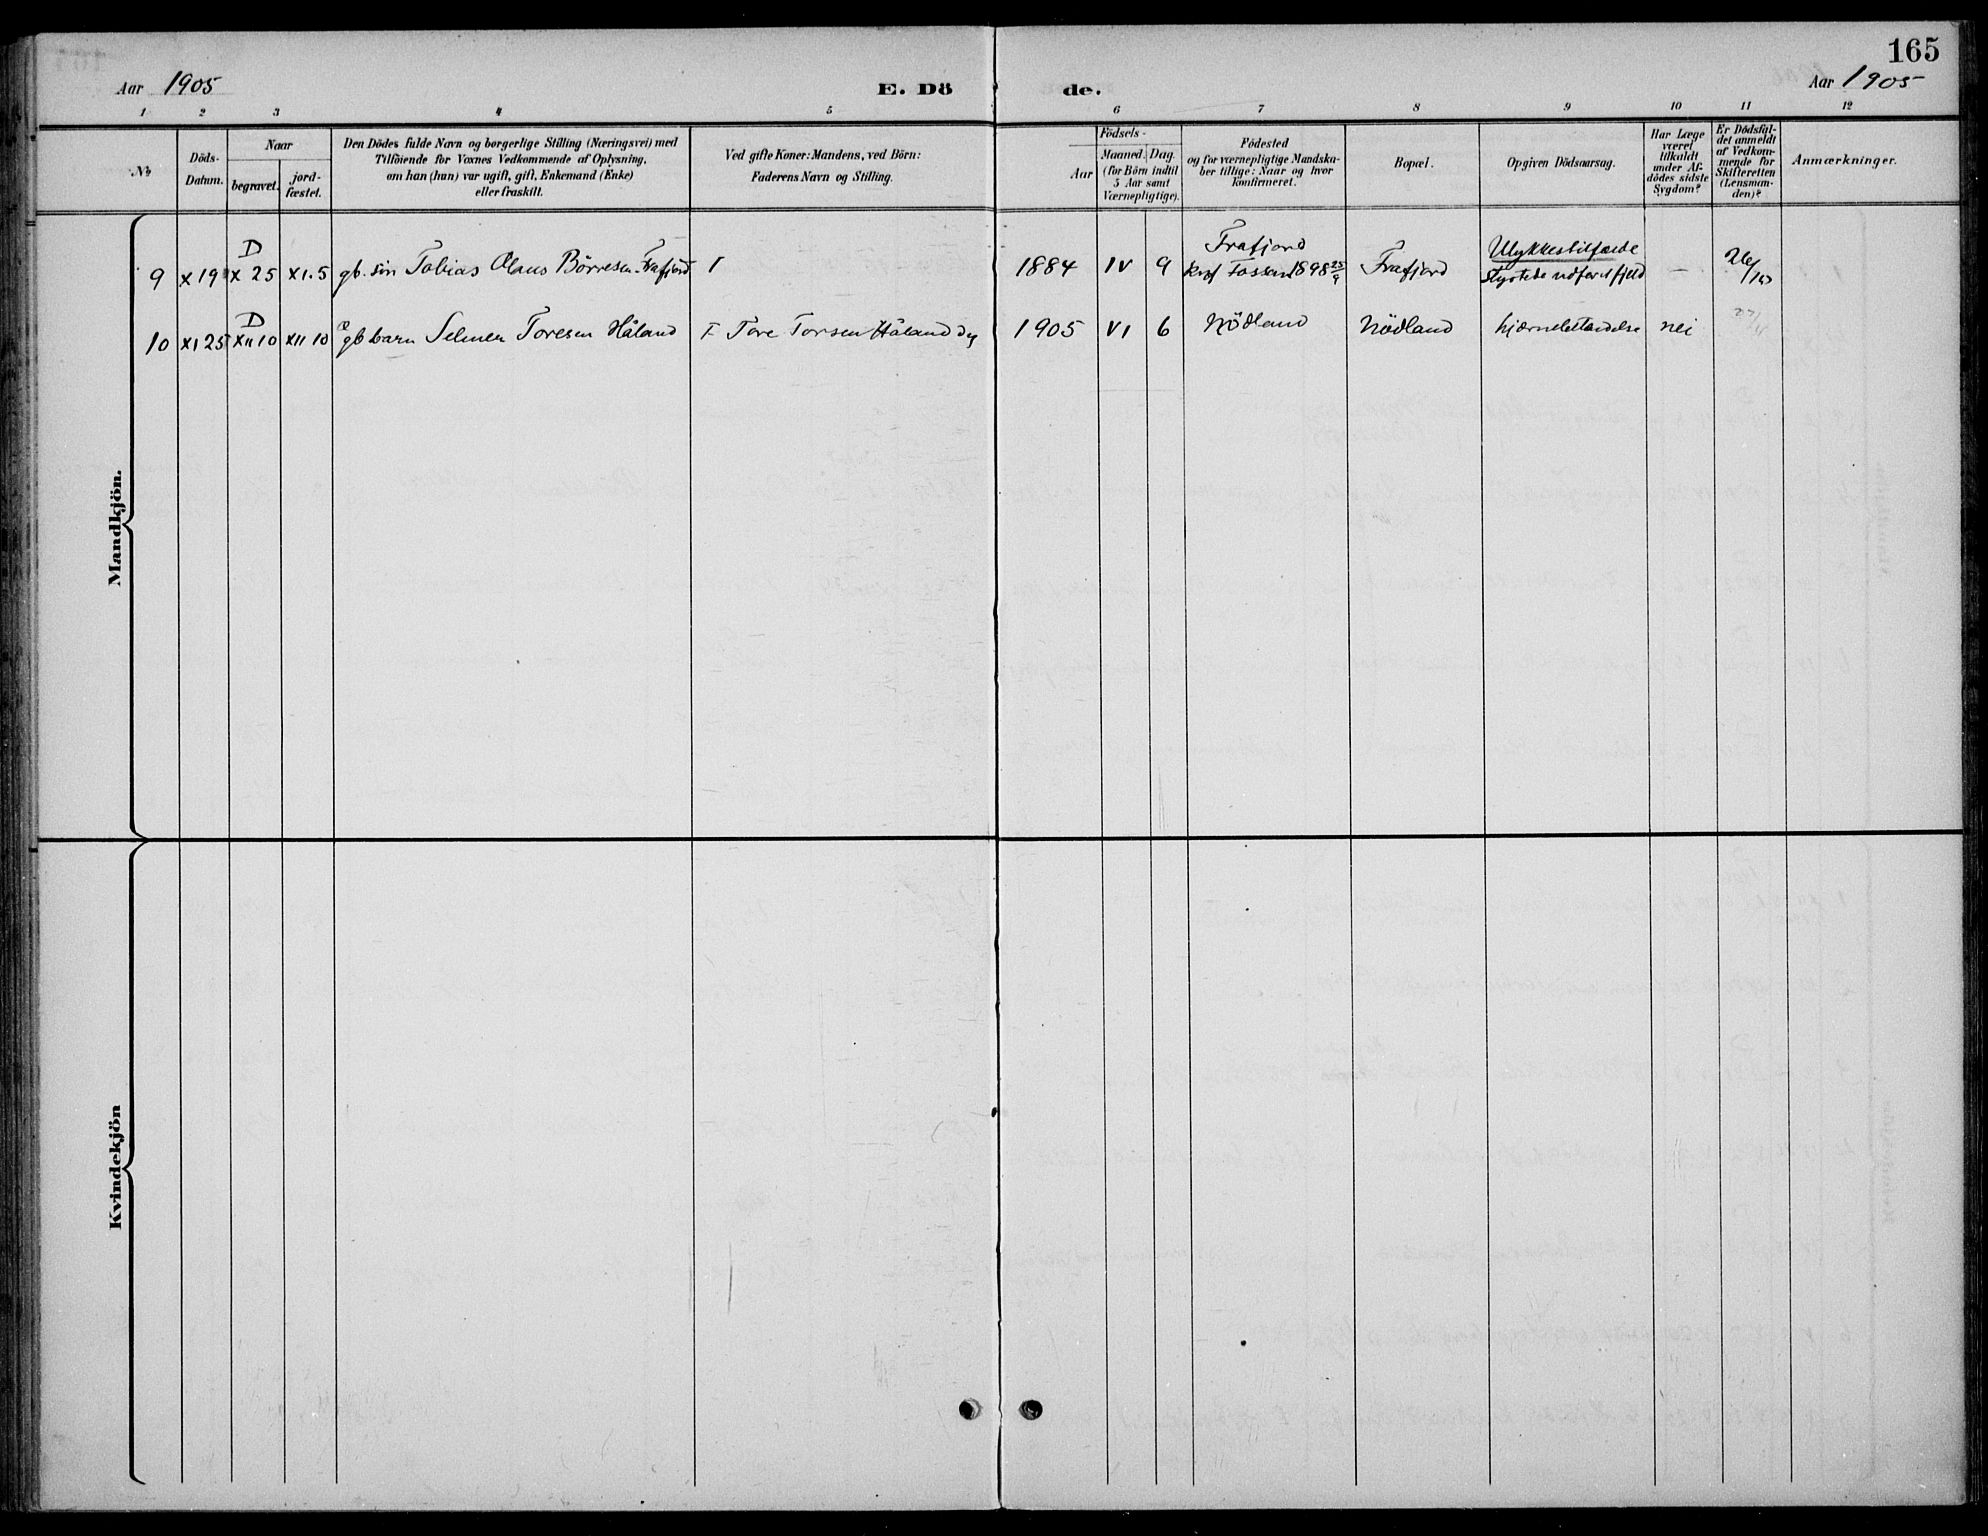 165
Aar 1905
E. Dö de.
Aar 1905
1 2 3 4 5 6 7 8 9 10 11 12
No
Döds-Datum.
Naar
begravet.
jord-fæstet.
Den Dödes fulde Navn og borgerlige Stilling (Næringsvei) med
Tilföiende for Voxnes Vedkommende af Oplysning,
om han (hun) var ugift, gift, Enkemand (Enke)
eller fraskilt.
Ved gifte Koner: Mandens, ved Börn:
Faderens Navn og Stilling.
Födsels-
Aar
Maaned. Dag.
(for Börn indtil
5 Aar samt
Værnepligtige).
Födested
og for værnepligtige Mandska-
ber tillige: Naar og hvor
konfirmeret.
Bopæl.
Opgiven Dödsaarsag.
Har Læge
været
tilkaldt
under Af-
dödes sidste
Sygdom?
Er Dödsfal-
det anmeldt
af Vedkom-
mende for
Skifteretten
(Lensman-
den)?
Anmærkninger.
Mandkjön.
9 X 19 D X 25 XI. 5 gb. sön Tobias Olaus Börresen Frafjord 1884 IV 9 Frafjord
Knf Fossan 1898 25/9 Frafjord Ulykkestilfælde
Styrtede udfor et fjeld — 26/10
10 XI 25 D XII 10 XII 10 gb barn Selmer Toresen Håland F Tore Torsen Håland 1905 VI 6 Nödland Nödland hjernebetændelse nei
Kvindekjön